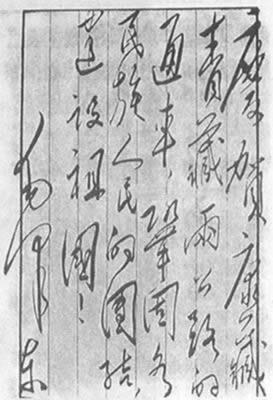 庆贺康藏
青藏两公路的
通车，巩固各
民族人民的团结，
建设祖国！
毛泽东